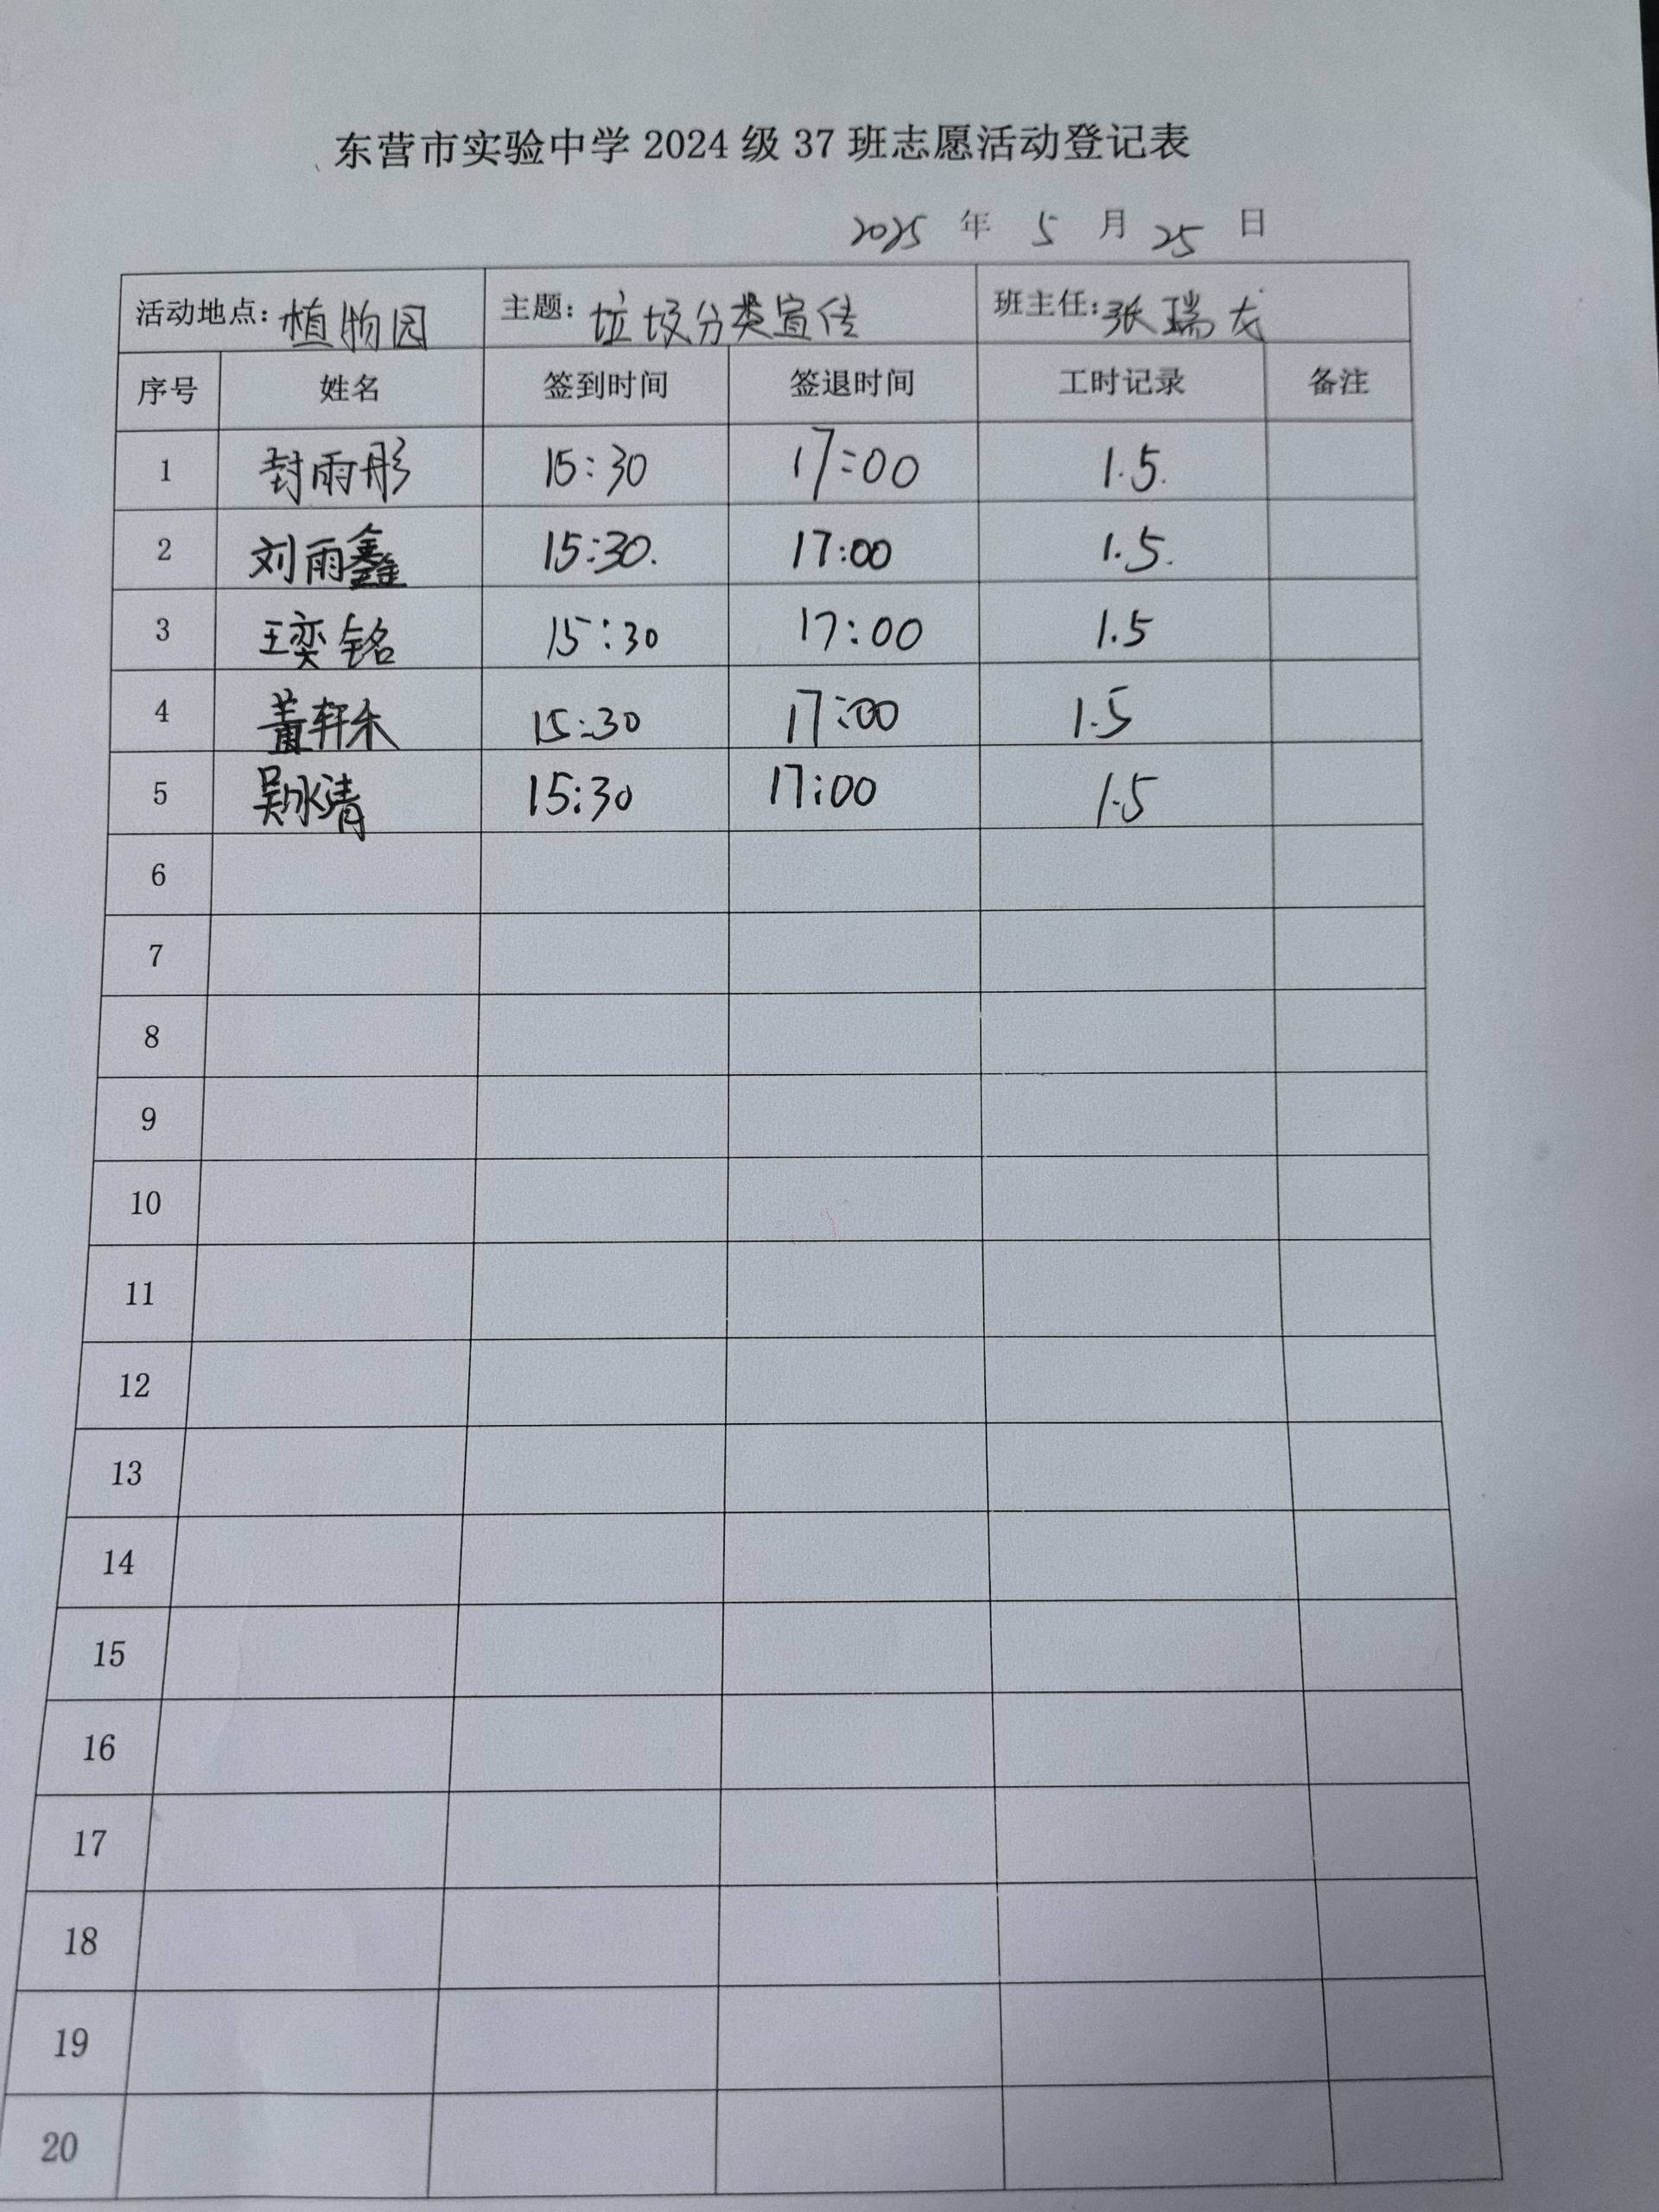 东营市实验中学 2024 级 37 班志愿活动登记表
2025 年 5 月 25 日
活动地点: 植物园 主题: 垃圾分类宣传 班主任: 张瑞龙
序号 姓名 签到时间 签退时间 工时记录 备注
1 封雨彤 15:30 17:00 1.5.
2 刘雨鑫 15:30. 17:00 1.5.
3 王奕铭 15:30 17:00 1.5
4 董轩禾 15:30 17:00 1.5
5 吴冰清 15:30 17:00 1.5
6
7
8
9
10
11
12
13
14
15
16
17
18
19
20